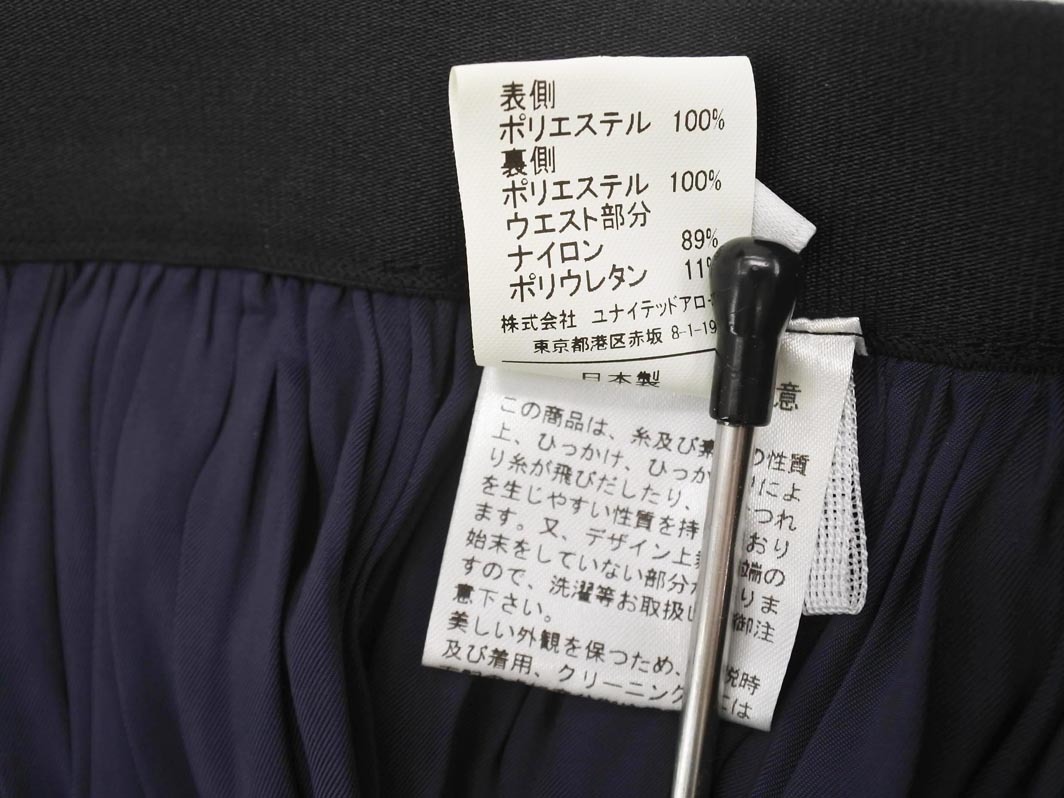 表側
ポリエステル 100%
裏側
ポリエステル 100%
ウエスト部分
ナイロン 89%
ポリウレタン 11%
株式会社 ユナイテッドアロ
東京都港区赤坂 8-1-19
日本製
意
この商品は、糸及び の性質
上、ひっかけ、ひっか によ
り糸が飛びだしたり、 つれ
を生じやすい性質を持 おり
ます。又、デザイン上 端の
始末をしていない部分 りま
すので、洗濯等お取扱い 御注
意下さい。
美しい外観を保つため、 脱時
及び着用、クリーニング には